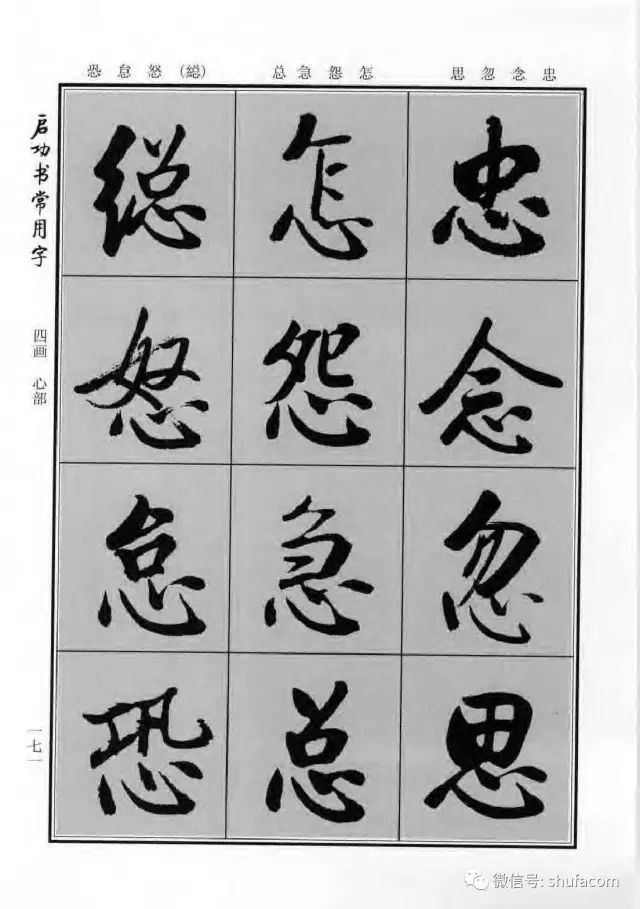 忠念忽思 怎怨急总 (緫)怒怠恐
忠念忽思
怎怨急总
緫怒怠恐
启功书常用字
四画 心部
一七一
微信号: shufacom